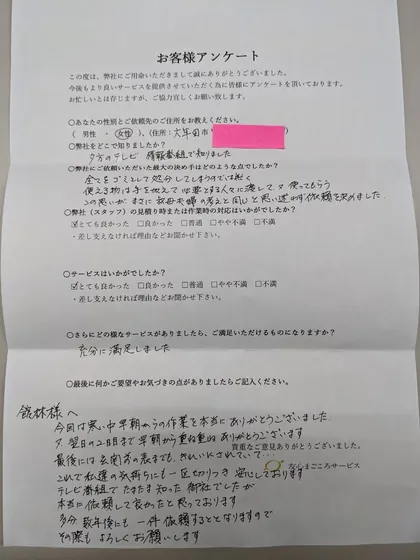 お客様アンケート
この度は、弊社にご用命いただきまして誠にありがとうございました。
今後もより良いサービスを提供させていただく為に皆様にアンケートを頂いております。
お忙しいとは存じますが、ご協力宜しくお願い致します。
○あなたの性別とご依頼先のご住所をお教えください。
( 男性 ・ 女性 )、(住所: 大牟田市 )
○弊社をどこで知りましたか?
夕方のテレビ 情報番組で知りました
○弊社にご依頼いただいた最大の決め手はどのような点でしたか?
全てをゴミとして処分してしまうのでは無く
使える物は手を加えて必要とする人々に渡して、又使ってもらう
この思いが まさに叔母夫婦の考えと同じと思い迷わず依頼を決めました。
○弊社(スタッフ)の見積り時または作業時の対応はいかがでしたか?
☑とても良かった □良かった □普通 □やや不満 □不満
・差し支えなければ理由などお聞かせ下さい。
○サービスはいかがでしたか?
☑とても良かった □良かった □普通 □やや不満 □不満
・差し支えなければ理由などお聞かせ下さい。
○さらにどの様なサービスがありましたら、ご満足いただけるものになりますか?
充分に満足しました
○最後に何かご要望やお気づきの点がありましたらご記入ください。
館林様へ
今回は寒い中早朝からの作業を本当にありがとうございました。
又、翌日の2日目まで早朝から重ね重ねありがとうございます
貴重なご意見ありがとうございました。
最後には玄関お の表までも、きれいにされていて…
これで私達の気持ちにも一区切りつき 安心しております
な心まごころサービス
テレビ番組でたまたま知った御社でしたが
本当に依頼して良かったと思っております
多分 数年後にも 一件依頼するとなりますので
その際も よろしくお願いします